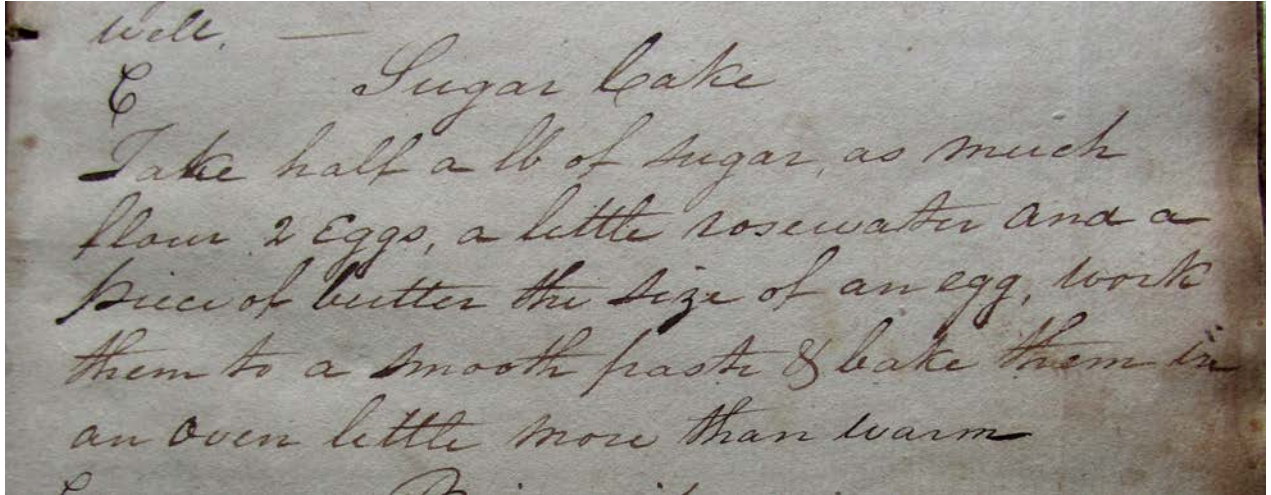 well. —
C Sugar Cake
Take half a lb of sugar, as much
flour 2 Eggs, a little rosewater and a
piece of butter the size of an egg, work
them to a smooth paste & bake them in
an oven little more than warm